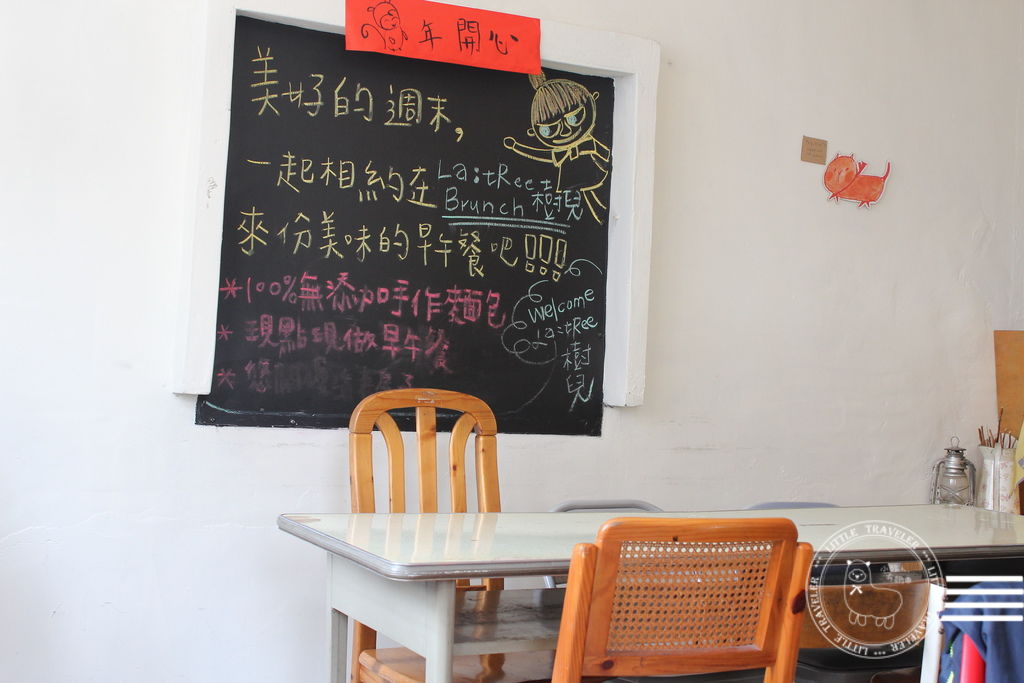 年開心
美好的週末,
一起相約在 La:tRee Brunch 樹兒
來份美味的早午餐吧!!!
*100%無添加手作麵包
*現點現做早午餐
welcome
La:tRee
樹兒
LITTLE TRAVELER
LITTLE TRAVELER